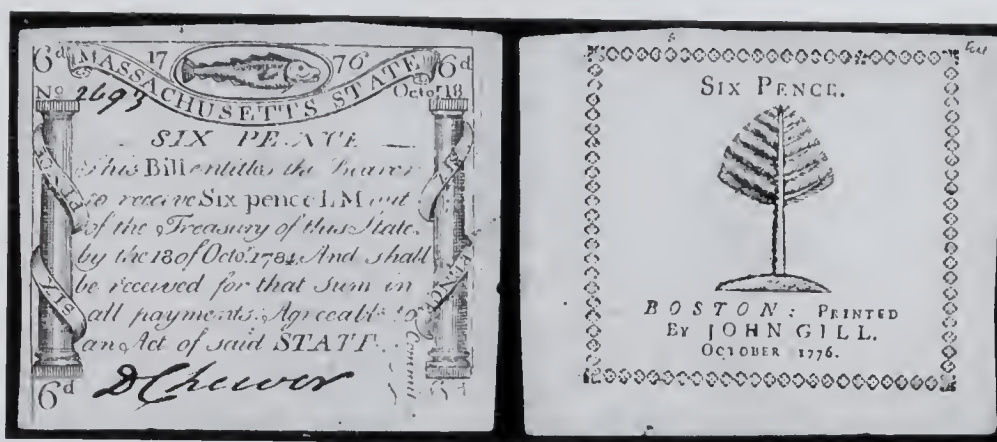 6d 17 76 6d
MASSACHUSETTS STATE
No 2693 Octor 18
SIX PENCE
This Bill entitles the Bearer
to receive Six pence LM out
of the Treasury of this State
by the 18 of Octor. 1784, And shall
be received for that Sum in
all payments. Agreeable to
an Act of said STATE
6d D Chever
Committ
SIX PENCE
SIX PENCE
SIX PENCE.
BOSTON: PRINTED
BY JOHN GILL.
OCTOBER 1776.